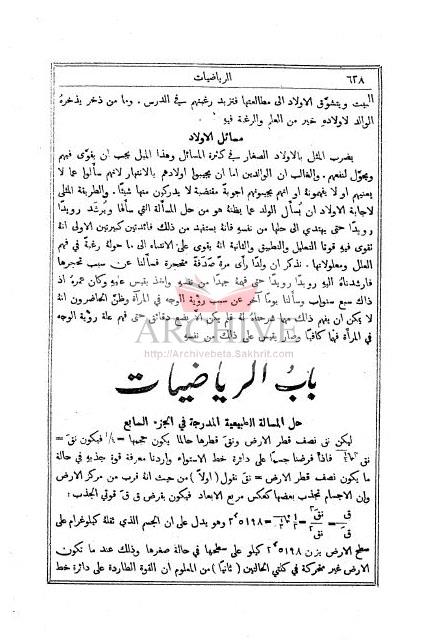 ٦٢٨ الرياضيات
البيت ويتشوّق الاولاد الى مطالعتها فتزيد رغبتهم في الدرس. وما من ذخر يذخرهُ
الوالد لاولادهِ خير من العلم والرغبة فيهِ
مسائل الاولاد
يضرب المثل بالاولاد الصغار في كثرة المسائل وهذا الميل يجب ان يقوّى فيهم
ويحوّل لنفعهم. والغالب ان الوالدين اما ان يجيبوا اولادهم بالانتهار لانهم سألوا عما لا
يعنيهم او لا يفهمونهُ او انهم يجيبونهم اجوبة مقتضبة لا يدركون منها شيئًا. والطريقة المثلى
لاجابة الاولاد ان يُسأل الولد عما يظنهُ هو من حل المسألة التي سألها ويُرشَد رويدًا
رويدًا حتى يهتدي الى حلها من نفسهِ فانهُ يستفيد من ذلك فائدتين كبيرتين الاولى انهُ
تقوى فيهِ قوتا التعليل والتطبيق والثانية انهُ يقوى على الانتباه الى ما حولهُ رغبة في فهم
العلل ومعلولاتها. نذكر ان ولدًا رأى مرة صَدَفة متحجرة فسألنا عن سبب تحجرها
فارشدناهُ اليهِ رويدًا رويدًا حتى فهمهُ جيدًا من نفسهِ واخذ يقيس عليهِ وكان عمرهُ اذ
ذاك سبع سنوات وسألنا يومًا آخر عن سبب رؤية الوجه في المرآة وظنَّ الحاضرون انهُ
لا يمكن ان يفهم ذلك مهما شرحناهُ لهُ فلم يكن الا بضع دقائق حتى فهم علة رؤية الوجه
في المرآة فهمًا كافيًا وصار يقيس على ذلك من نفسهِ
ARCHIVE
http://Archivebeta.Sakhrit.com
باب الرياضيات
حل المسالة الطبيعية المدرجة في الجزء السابع
ليكن نق نصف قطر الارض ونقَ قطرها حالما يكون حجمها = ١/٨ فيكون نقَ =
فاذا فرضنا جسمًا على دائرة خط الاستواء واردنا معرفة قوة جذبهِ في حالة
ما يكون نصف قطر الارض = نقَ نقول (اولًا) من حيث انهُ قرب من مركز الارض
وإن الاجسام تجذب بعضها كعكس مربع الابعاد فيكون بفرض ق قَ قوتي الجذب:
وهو يدل على ان الجسم الذي ثقلهُ كيلوغرام على
سطح الارض يزن ٢٬٥١٩٨ كيلو على سطحها في حالة صغرها وذلك عند ما تكون
الارض غير متحركة في كلتي الحالتين (ثانيًا) من المعلوم ان القوة الطاردة على دائرة خط